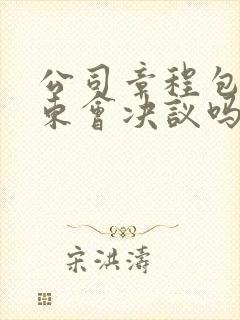 公司章程包
东會决議吗
宋洪濤